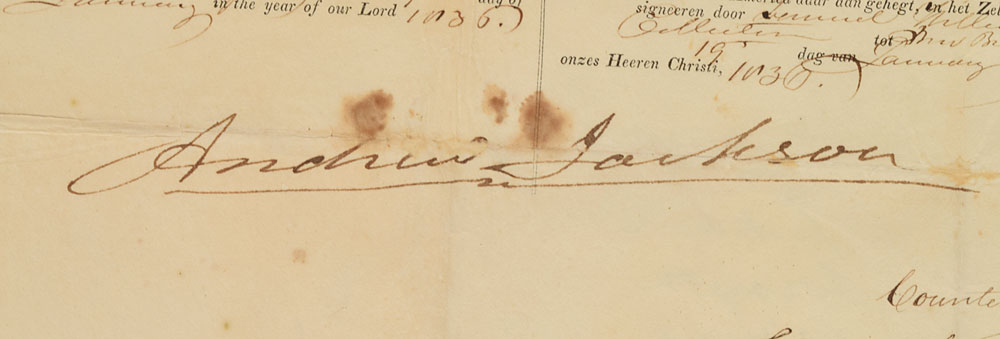 January in the year of our Lord 1836.
day of
daar aan gehegt, en het Zel
signeeren door Samuel
Collector tot New B
19 dag van January
onzes Heeren Christi, 1836.
Andrew Jackson
Counte